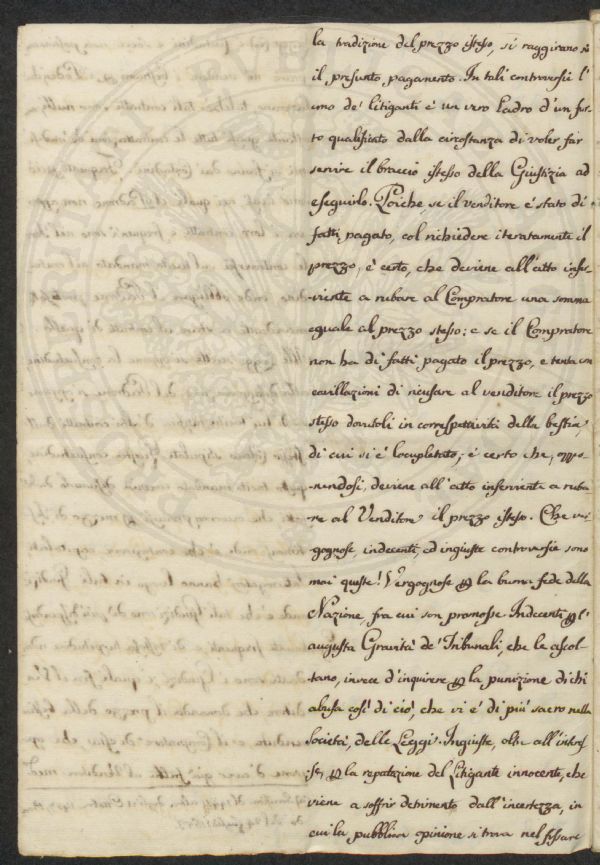 la tradizione del prezzo istesso, si raggirano su
il presunto pagamento. In tali controversie l'
uno de' litiganti è un vero Ladro d'un fur-
to qualificato dalla circostanza di voler far
servire il braccio istesso della Giustizia ad
eseguirlo. Poiche, se il venditore è stato di
fatti pagato, col richiedere iteratamente il
prezzo, è certo, che deviene all'atto inser-
viente a rubare al Compratore una somma
eguale al prezzo stesso: e se il Compratore
non ha di fatti pagato il prezzo, e tenta con
cavillazioni di ricusare al venditore il prezzo
stesso dovutoli in correspettività della bestia,
di cui si è locupletato, è certo che, oppo-
nendosi, deviene all'atto inserviente a ruba-
re al Venditore il prezzo istesso. Che ver-
gognose, indecenti, ed ingiuste controversie sono
mai queste! Vergognose p la buona fede della
Nazione, fra cui son promosse. Indecenti p l'
augusta Gravità de' Tribunali, che le ascol-
tano, invece d'inquirere p la punizione di chi
abusa così di ciò, che vi è di più sacro nella
Società, delle Leggi. Ingiuste, oltre all'interes-
se, p la reputazione del Litigante innocente, che
viene a soffrir detrimento dall'incertezza, in
cui la pubblica opinione si trova nel fissare